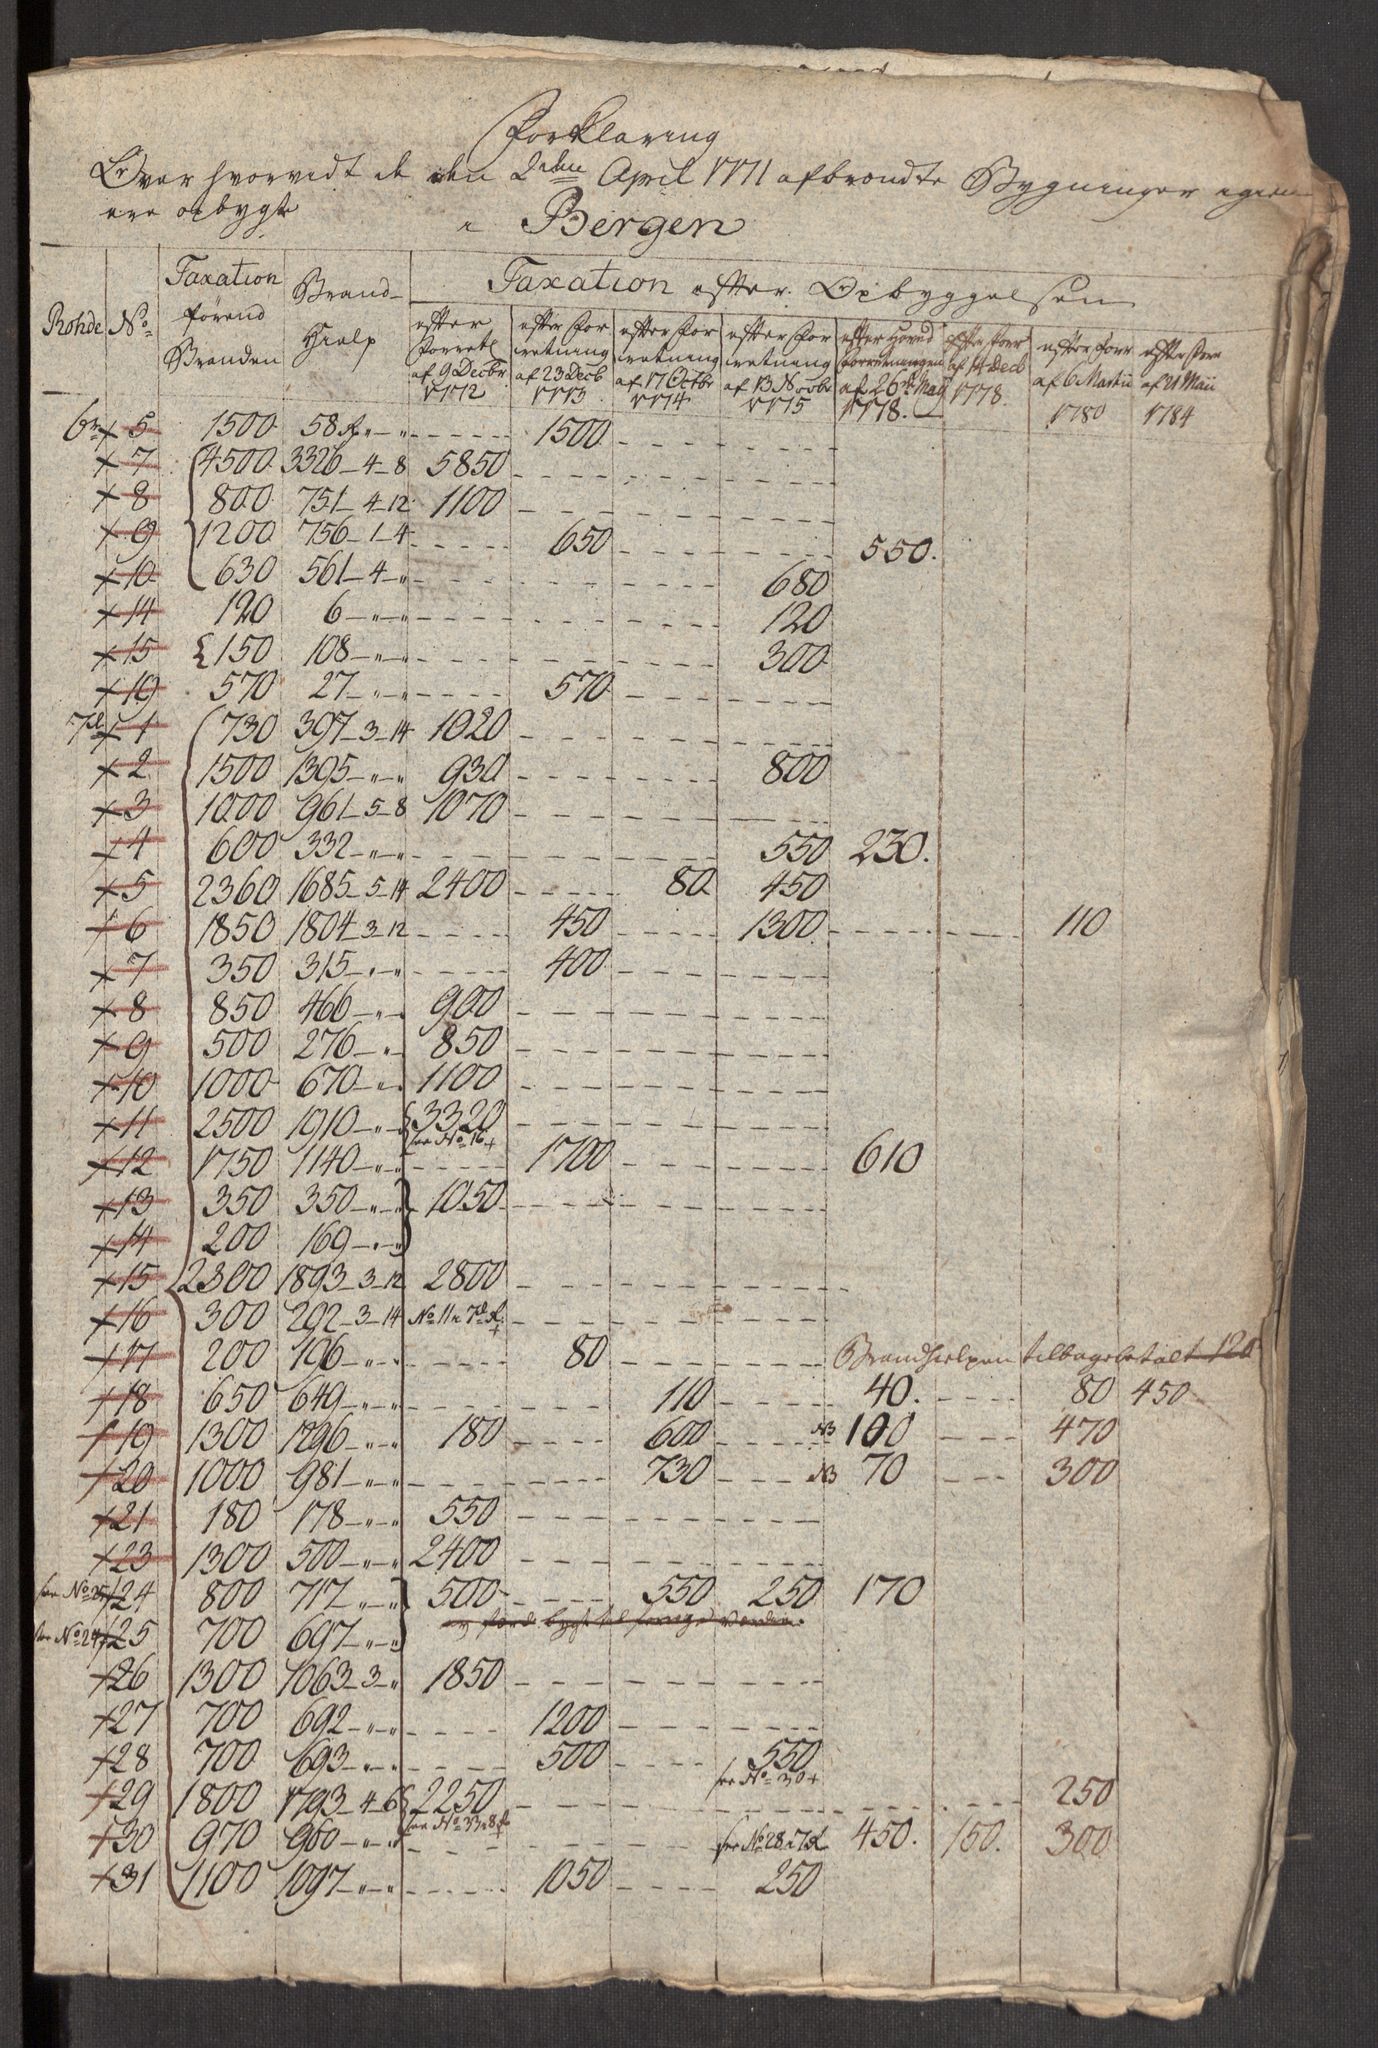 Forklaring
Over hvorvidt de den 2den April 1771 afbrendte Bygninger igien
ere opbygte i Bergen
Rohde No Taxation førend Branden Brand Hielp Taxation efter Opbyggelsen
efter Forretn af 9 Decbr 1772 efter For retning af 23 Decb 1773 efter For retning af 17 Octbr 1774 efter For retning af 13 Novbr 1775 efter Hoved forretningen af 26de Maij 1778. efter forr af 14 Decb 1778. efter forr af 6 Martii 1780 efter forr af 21 Maii 1784
6te + 5 1500 58 „ „ 1500
+ 7 4500 3326 - 4 - 8 5850
+ 8 800 751 - 4 - 12 1100
+ 9 1200 756 - 1 - 4 650 550.
+ 10 630 561 - 4 - „ 680
+ 14 120 6 - „ - „ 120
+ 15 150 108 - „ - „ 300
+ 19 570 27 - „ - „ 570
7de + 1 730 397 - 3 - 14 1020
+ 2 1500 1395 - „ - „ 930 800
+ 3 1000 961 - 5 - 8 1070
+ 4 600 332 - „ - „ 550 230.
+ 5 2360 1685 - 5 - 14 2400 80 450
+ 6 1850 1804 - 3 - 12 450 1300 110
+ 7 350 315 - „ - „ 400
+ 8 850 466 - „ - „ 900
+ 9 500 276 - „ - „ 850
+ 10 1000 670 - „ - „ 1100
+ 11 2500 1910 - „ - „ 3320
see No 16 +
+ 12 1750 1140 - „ - „ 1700 610
+ 13 350 350 - „ - „ 1050
+ 14 200 169 - „ - „
+ 15 2300 1893 - 3 - 12 2800
+ 16 300 292 - 3 - 14 No 11 i 7de R. +
+ 17 200 196 - „ - „ 80 Brandhielpen tilbagebetalt 120
+ 18 650 649 - „ - „ 110 40. 80 450
+ 19 1300 1296 - „ - „ 180 600 NB 100 470
+ 20 1000 981 - „ - „ 730 NB 70 300
+ 21 180 178 - „ - „ 550
+ 23 1300 500 - „ - „ 2400
see No 25 + 24 800 717 - „ - „ 500 550 250 170
see No 24 + 25 700 697 - „ - „
+ 26 1300 1063 - 3 - „ 1850
+ 27 700 692 - „ - „ 1200
+ 28 700 693 - „ - „ 500 550
see No 30 +
+ 29 1800 1793 - 4 - 6 2250 250
see No 33 i 8 R
+ 30 970 960 - „ - „ see No 28 i 7 R 450. 150. 300
+ 31 1100 1097 - „ - „ 1050 250